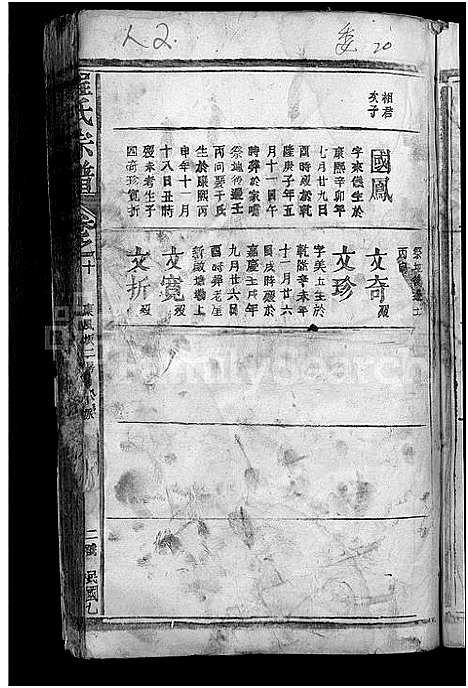 人2. 委 20
相君
次子
國鳳
字來儀生於
康熙辛卯年
七月廿九日
酉時歿於乾
隆庚子年五
月十一日午
時葬於家嘴
祭地後邊王
丙向娶于氏
生於康熙丙
申年十一月
十八日丑時
歿未考生子
四奇珍寬折
丙向
文奇 歿
文珍
字美玉生於
乾隆辛未年
十一月廿六
日戌時歿於
嘉慶壬戌年
九月廿六日
酉時葬老屋
新啟塘墈上
文寬 歿
文折 歿
氏宗譜
卷之十
二 民國九
FamilySearch